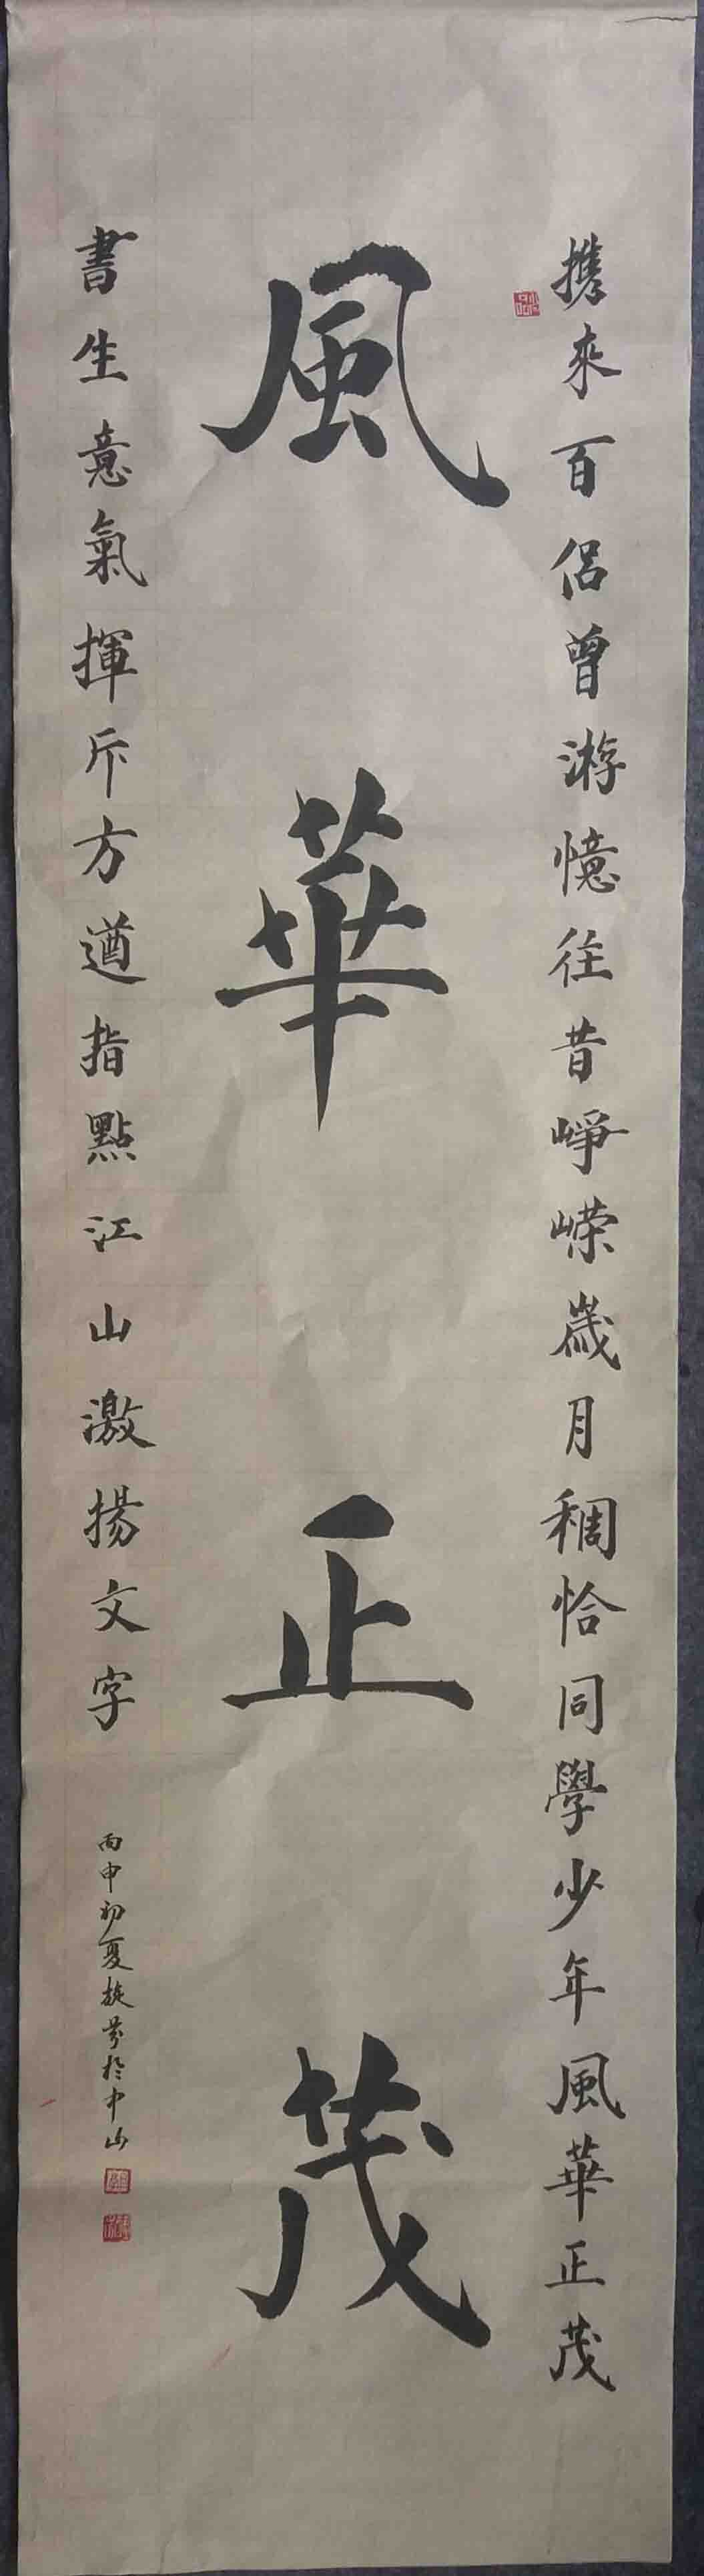 携來百侣曾游憶往昔崢嶸嵗月稠恰同學少年風華正茂
風華正茂
書生意氣揮斥方遒指點江山激揚文字
丙申初夏旋芬於中山